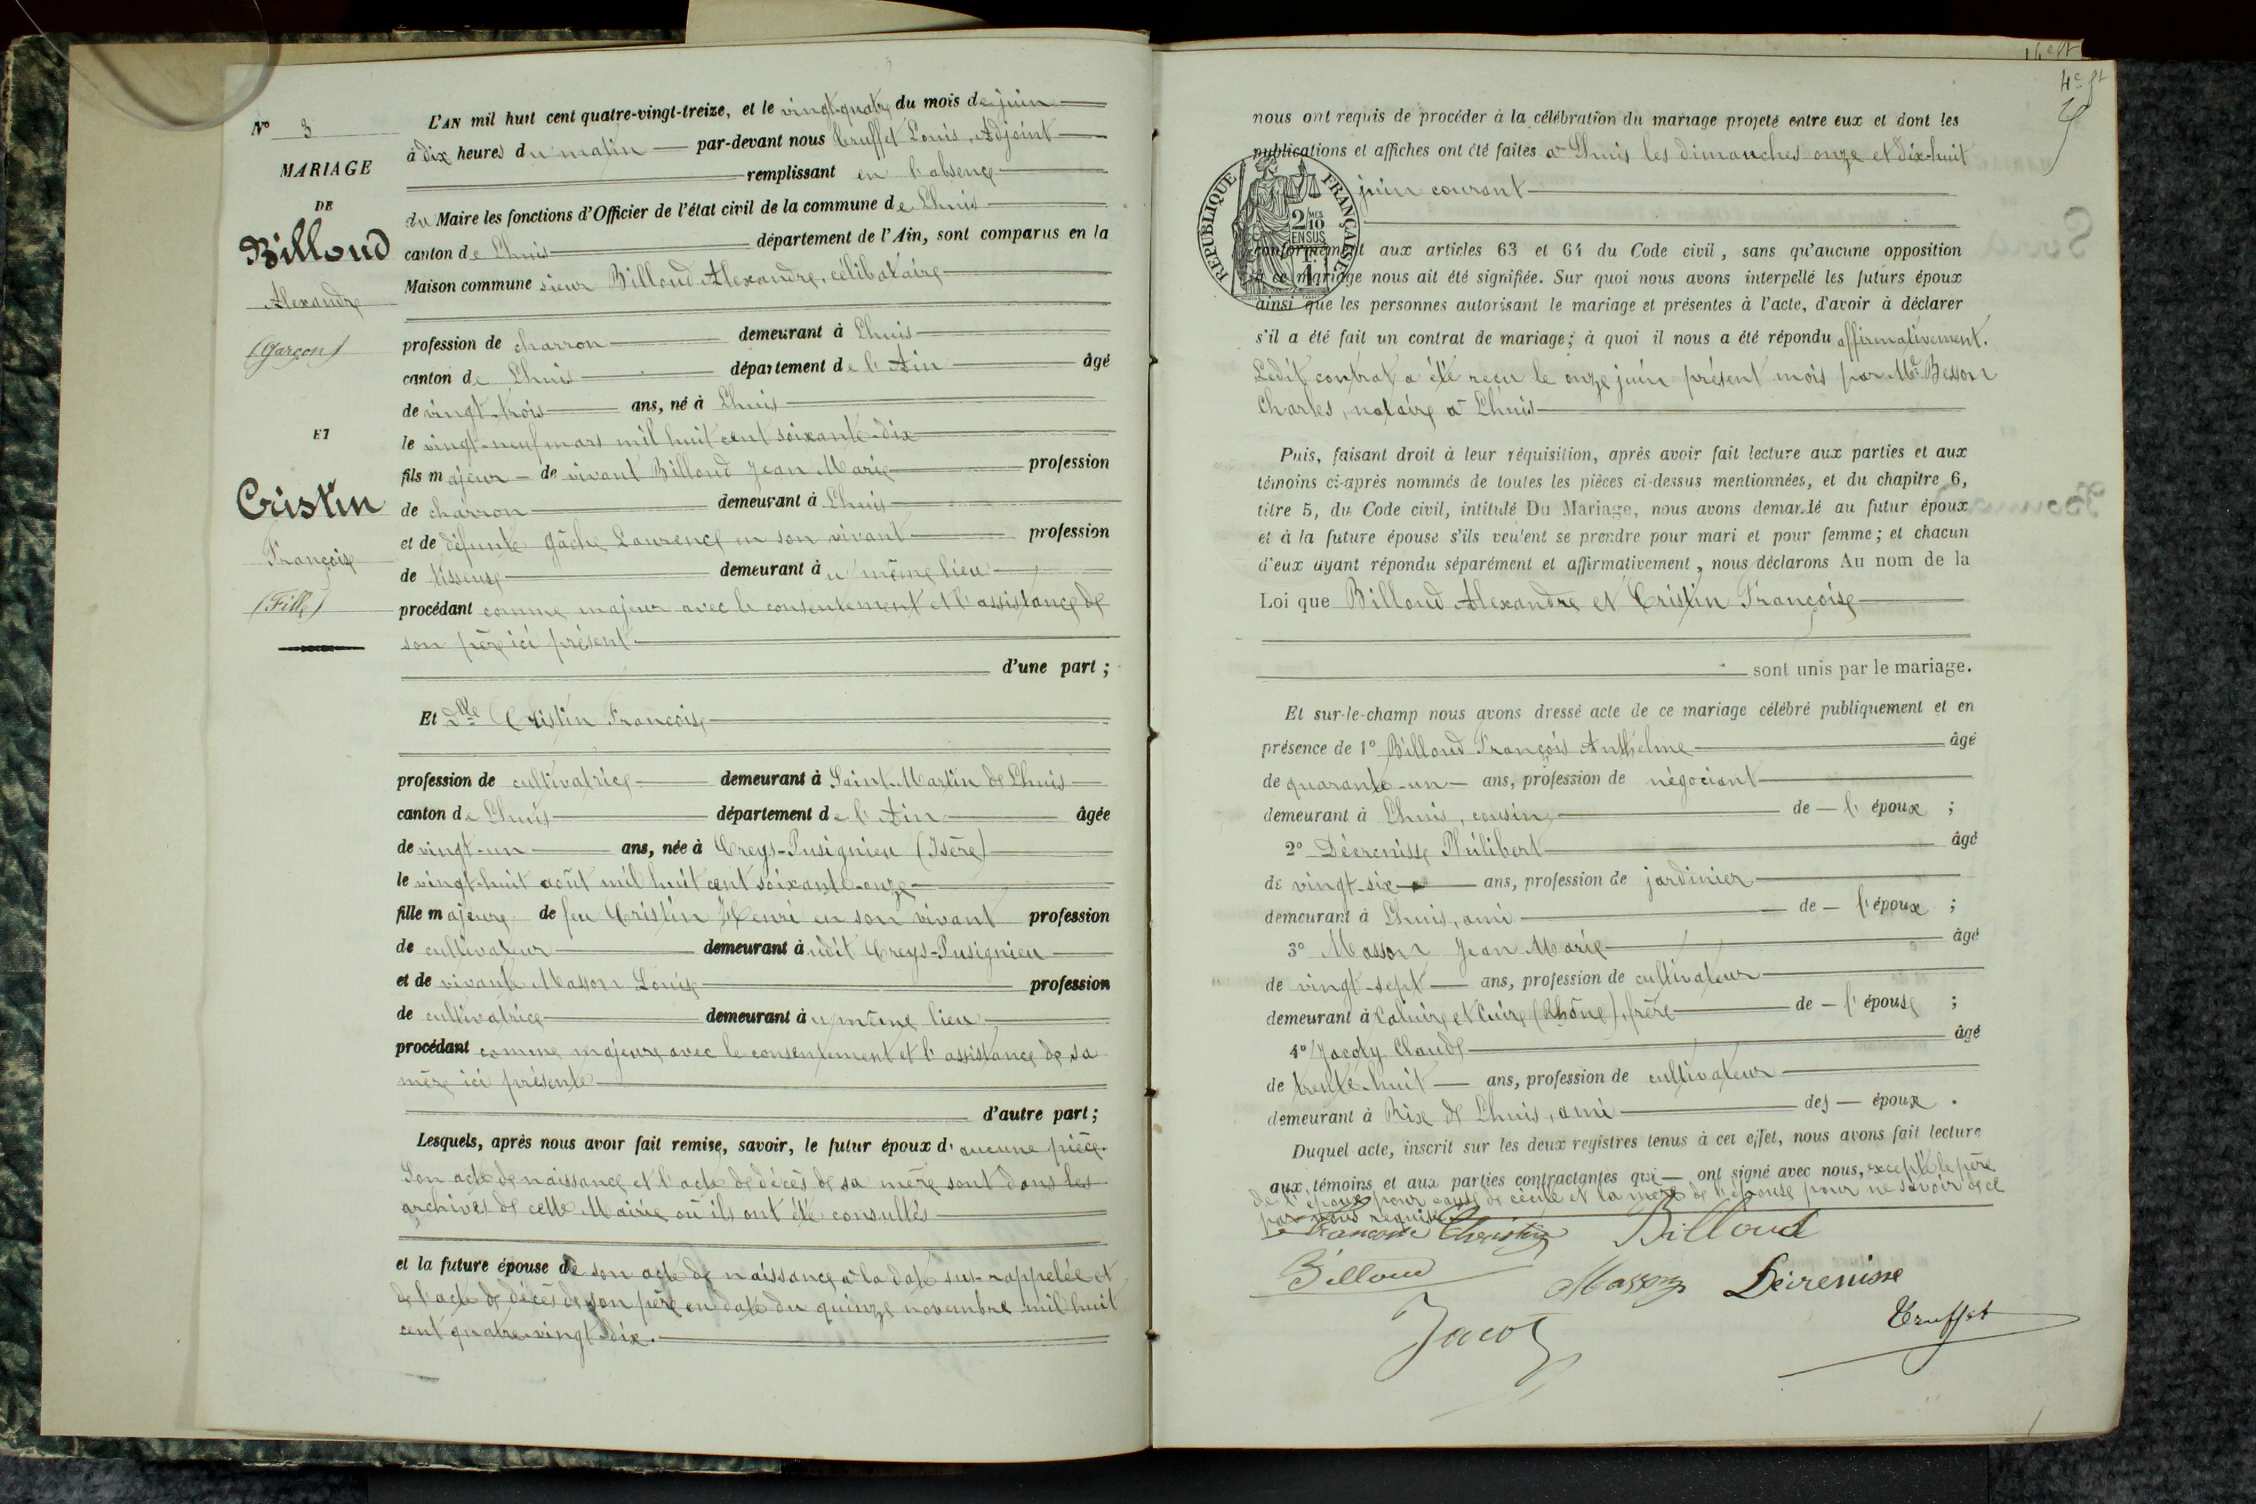 N° 3
MARIAGE
DE
Billoud
Alexandre
(Garçon)
ET
Cristin
Françoise
(Fille)
L'AN mil huit cent quatre-vingt-treize, et le vingt-quatre du mois de juin
à dix heures du matin par-devant nous Truffet Louis, Adjoint
remplissant en l'absence
du Maire les fonctions d'Officier de l'état civil de la commune de Lhuis
canton de Lhuis département de l'Ain, sont comparus en la
Maison commune sieur Billoud Alexandre, célibataire
profession de charron demeurant à Lhuis
canton de Lhuis département de l'Ain âgé
de vingt-trois ans, né à Lhuis
le vingt-neuf mars mil huit cent soixante-dix
fils majeur de vivant Billoud Jean Marie profession
de charron demeurant à Lhuis
et de défunte Gâche Laurence en son vivant profession
de tisseuse demeurant au même lieu
procédant comme majeur avec le consentement et l'assistance de
son père ici présent
d'une part ;
Et Dlle Cristin Françoise
profession de cultivatrice demeurant à Saint-Martin de Lhuis
canton de Lhuis département de l'Ain âgée
de vingt-un ans, née à Creys-Pusignieu (Isère)
le vingt-huit août mil huit cent soixante-onze
fille majeure de feu Cristin Henri en son vivant profession
de cultivateur demeurant audit Creys-Pusignieu
et de vivante Masson Louise profession
de cultivatrice demeurant au même lieu
procédant comme majeure avec le consentement et l'assistance de sa
mère ici présente
d'autre part ;
Lesquels, après nous avoir fait remise, savoir, le futur époux d'aucune pièce.
Son acte de naissance et l'acte de décès de sa mère sont dans les
archives de cette Mairie où ils ont été consultés
et la future épouse de son acte de naissance à la date sus-rappelée et
de l'acte de décès de son père en date du quinze novembre mil huit
cent quatre-vingt-dix.
4e ft
nous ont requis de procéder à la célébration du mariage projeté entre eux et dont les
publications et affiches ont été faites à Lhuis les dimanches onze et dix-huit
juin courant
RÉPUBLIQUE FRANÇAISE
2/10 EN SUS
conformément aux articles 63 et 64 du Code civil, sans qu'aucune opposition
à ce mariage nous ait été signifiée. Sur quoi nous avons interpellé les futurs époux
ainsi que les personnes autorisant le mariage et présentes à l'acte, d'avoir à déclarer
s'il a été fait un contrat de mariage ; à quoi il nous a été répondu affirmativement.
Ledit contrat a été reçu le onze juin présent mois par Me Besson
Charles, notaire à Lhuis
Puis, faisant droit à leur réquisition, après avoir fait lecture aux parties et aux
témoins ci-après nommés de toutes les pièces ci-dessus mentionnées, et du chapitre 6,
titre 5, du Code civil, intitulé Du Mariage, nous avons demandé au futur époux
et à la future épouse s'ils veulent se prendre pour mari et pour femme ; et chacun
d'eux ayant répondu séparément et affirmativement, nous déclarons Au nom de la
Loi que Billoud Alexandre et Cristin Françoise
sont unis par le mariage.
Et sur-le-champ nous avons dressé acte de ce mariage célébré publiquement et en
présence de 1° Billoud François Anthelme âgé
de quarante-un ans, profession de négociant
demeurant à Lhuis, cousin de l'époux ;
2° Décrenisse Philibert âgé
de vingt-six ans, profession de jardinier
demeurant à Lhuis, ami de l'époux ;
3° Masson Jean Marie âgé
de vingt-sept ans, profession de cultivateur
demeurant à Caluire et Cuire (Rhône), frère de l'épouse ;
4° Jacoty Claude âgé
de trente-huit ans, profession de cultivateur
demeurant à Rix de Lhuis, ami des époux .
Duquel acte, inscrit sur les deux registres tenus à cet effet, nous avons fait lecture
aux témoins et aux parties contractantes qui ont signé avec nous, excepté le père
de l'époux pour cause de cécité et la mère de l'épouse pour ne savoir de ce
par nous requis
Françoise Christin Billoud
Billoud Masson Décrenisse
Jacoty Truffet